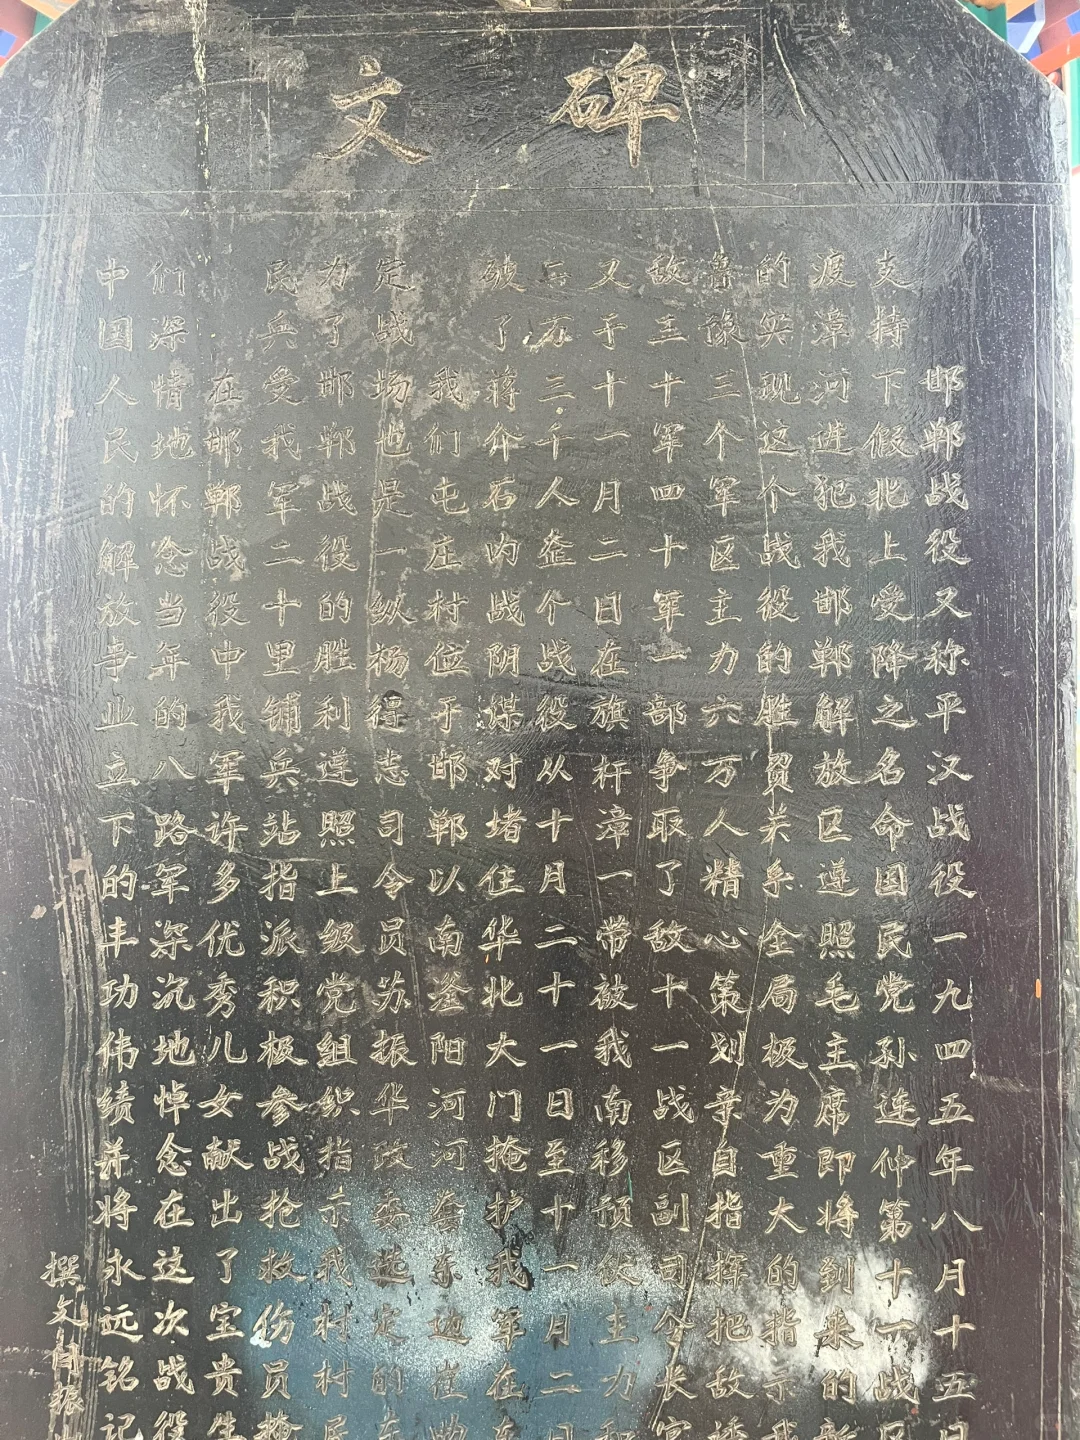 碑文
邯郸战役又称平汉战役一九四五年八月十五日
支持下假北上受降之名命国民党孙连仲第十一战区
渡漳河进犯我邯郸解放区遵照毛主席即将到来的新
的实现这个战役的胜负关系全局极为重大的指示我
鲁豫三个军区主力六万人精心策划亲自指挥把敌诱
敌三十军四十军一部争取了敌十一战区副司令长官
又于十一月二日在旗杆漳一带被我南移预 主力和
二万三千人整个战役从十月二十一日至十一月二日
破了蒋介石内战阴谋对堵住华北大门掩护我军在东
我们屯庄村位于邯郸以南滏阳河河套东边崖
定战场也是一纵杨得志司令员苏振华政委选定的
力了邯郸战役的胜利遵照上级党组织指示我村村民
民兵受我军二十里铺兵站指派积极参战抢救伤员掩
在邯郸战役中我军许多优秀儿女献出了宝贵生
们深情地怀念当年的八路军深沉地悼念在这次战役
中国人民的解放争业立下的丰功伟绩并将永远铭记
撰文 振